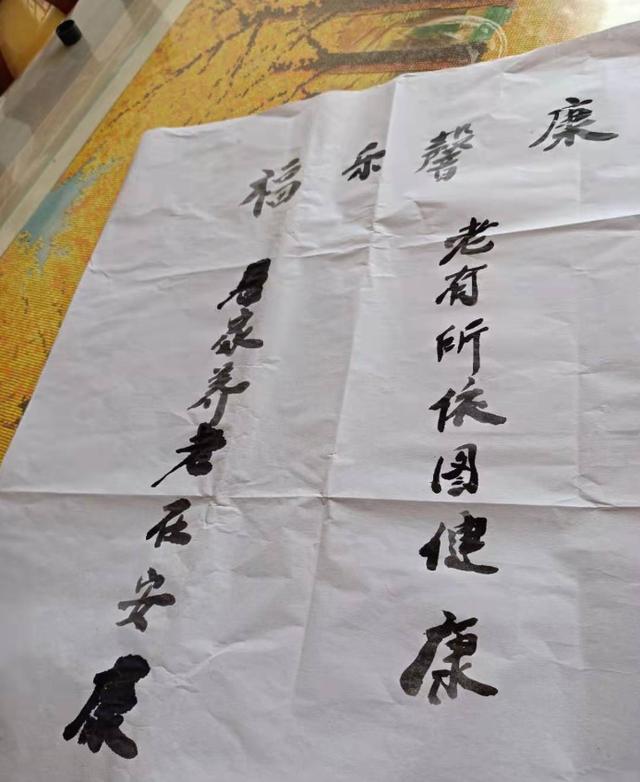 康馨乐福
老有所依图健康
居家养老在安康